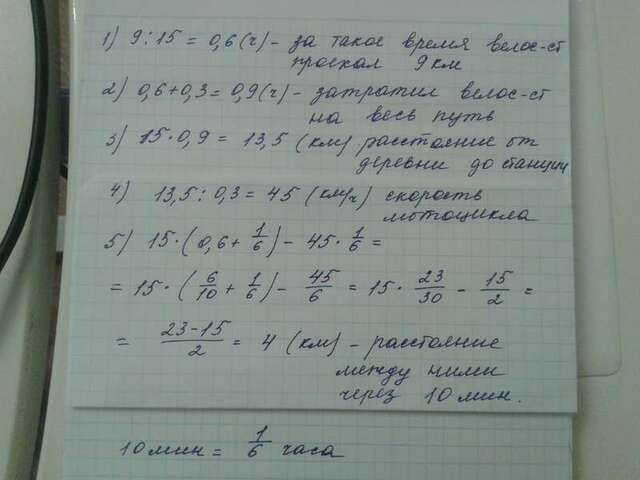 1) 9:15 = 0,6 (ч) - за такое время велос-ст
проехал 9 км
2) 0,6+0,3 = 0,9 (ч) - затратил велос-ст
на весь путь
3) 15·0,9 = 13,5 (км) расстояние от
деревни до станции
4) 13,5:0,3 = 45 (км/ч) скорость
мотоцикла
5) 15·(0,6+1/6) - 45·1/6 =
= 15·(6/10+1/6) - 45/6 = 15·23/30 - 15/2 =
= 23-15/2 = 4 (км) - расстояние
между ними
через 10 мин.
10 мин = 1/6 часа